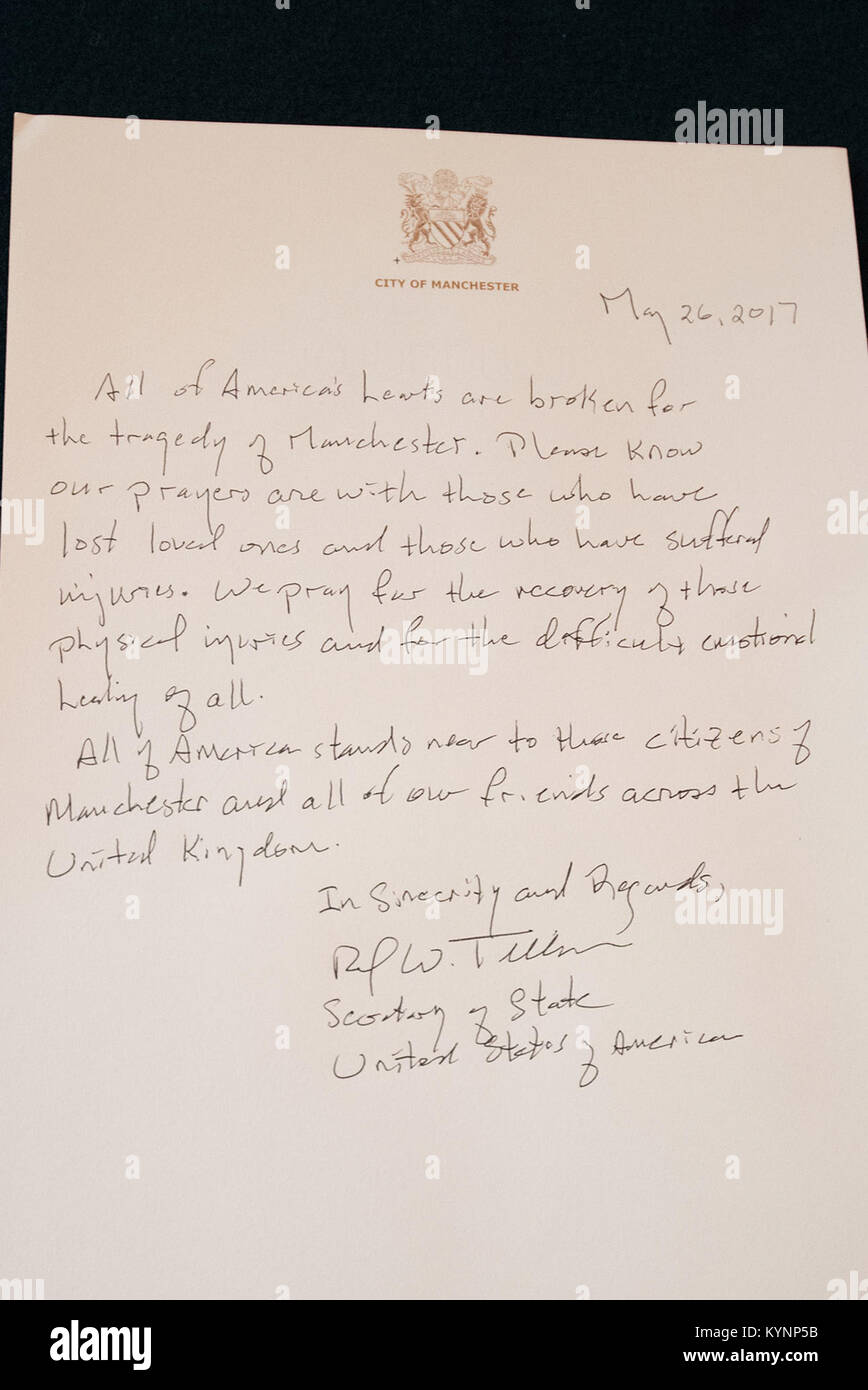 CITY OF MANCHESTER
May 26, 2017
All of America's hearts are broken for
the tragedy of Manchester. Please know
our prayers are with those who have
lost loved ones and those who have suffered
injuries. We pray for the recovery of those
physical injuries and for the difficult emotional
healing of all.
All of America stands near to those citizens of
Manchester and all of our friends across the
United Kingdom.
In Sincerity and Regards,
W. Tillerson
Secretary of State
United States of America
alamy
Image ID: KYNP5B
www.alamy.com